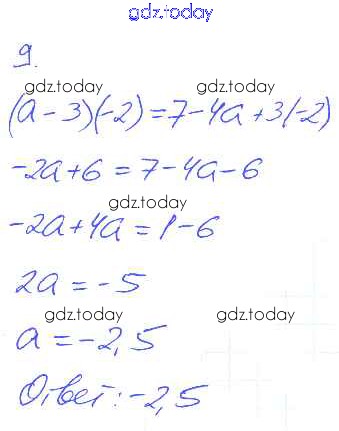 gdz.today
9.
gdz.today gdz.today
(a-3)(-2)=7-4a+3(-2)
-2a+6=7-4a-6
gdz.today
-2a+4a=1-6
2a=-5
gdz.today gdz.today
a=-2,5
Ответ:-2,5